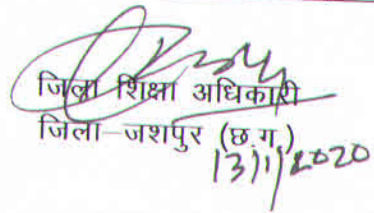 जिला शिक्षा अधिकारी
जिला–जशपुर (छ.ग.)
13/1/2020